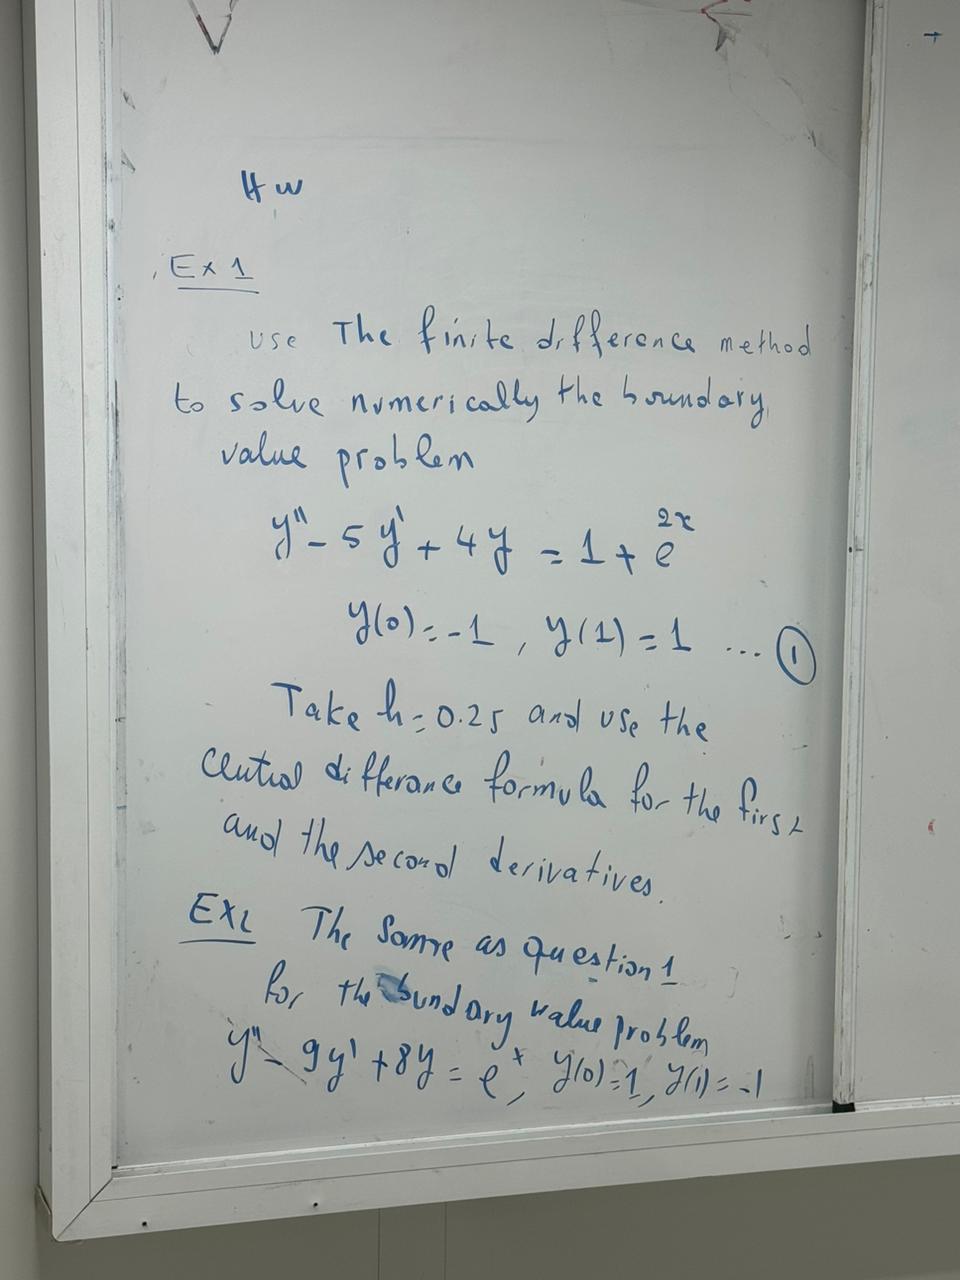 HW
Ex 1
Use The finite difference method
to solve numerically the boundary
value problem
y" - 5y' + 4y = 1 + e^{2x}
y(0) = -1 , y(1) = 1 ... ①
Take h = 0.25 and use the
central differance formula for the first
and the second derivatives.
EX2 The Same as question 1
for the bundary value problem
y" - 9y' + 8y = e^x, y(0) = 1, y(1) = -1